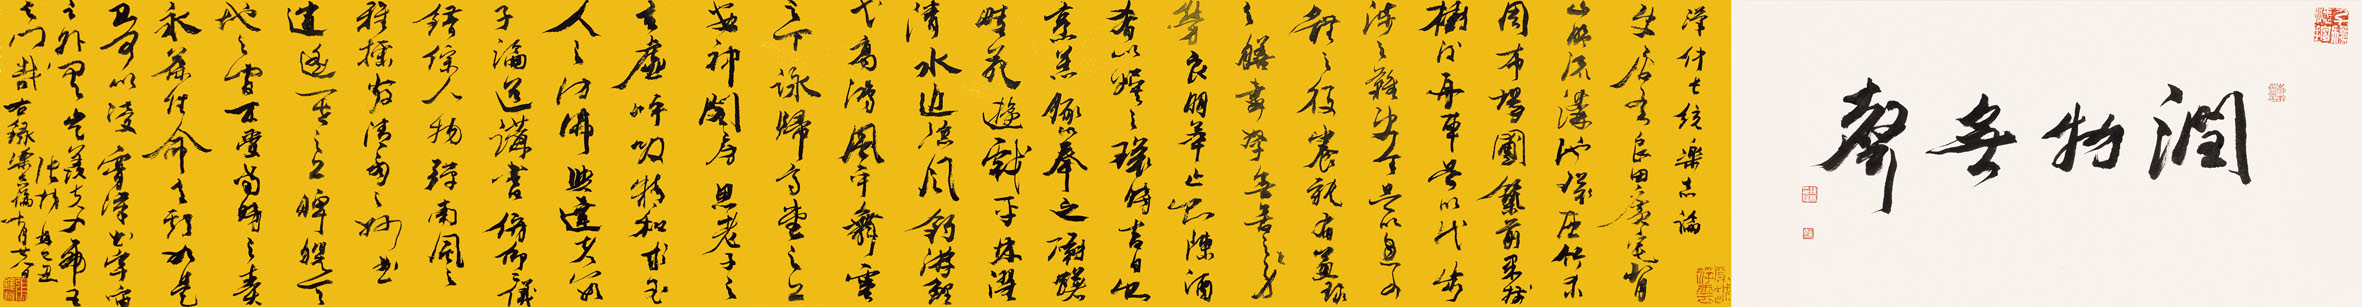 潤物無聲
漢仲長統樂志論
使居有良田廣宅背
山臨流溝池環匝竹木
周布場圃築前果園
樹後舟車足以代步
涉之難使令足以息四
體之役養親有兼珍
之膳妻孥無苦身之
勞良朋萃止則陳酒
肴以娛之嘉時吉日則
烹羔豚以奉之躕躇
畦苑遊戲平林濯
清水追涼風釣游鯉
弋高鴻風乎舞雩
之下詠歸高堂之上
安神閨房思老子之
玄虛呼吸精和求至
人之彷彿與達者數
子論道講書俯仰二儀
錯綜人物彈南風之
雅操發清商之妙曲
逍遙一世之上睥睨天
地之間不受當時之責
永保性命之期如是
則可以凌霄漢出宇宙
之外矣豈羨夫入帝王
之門哉